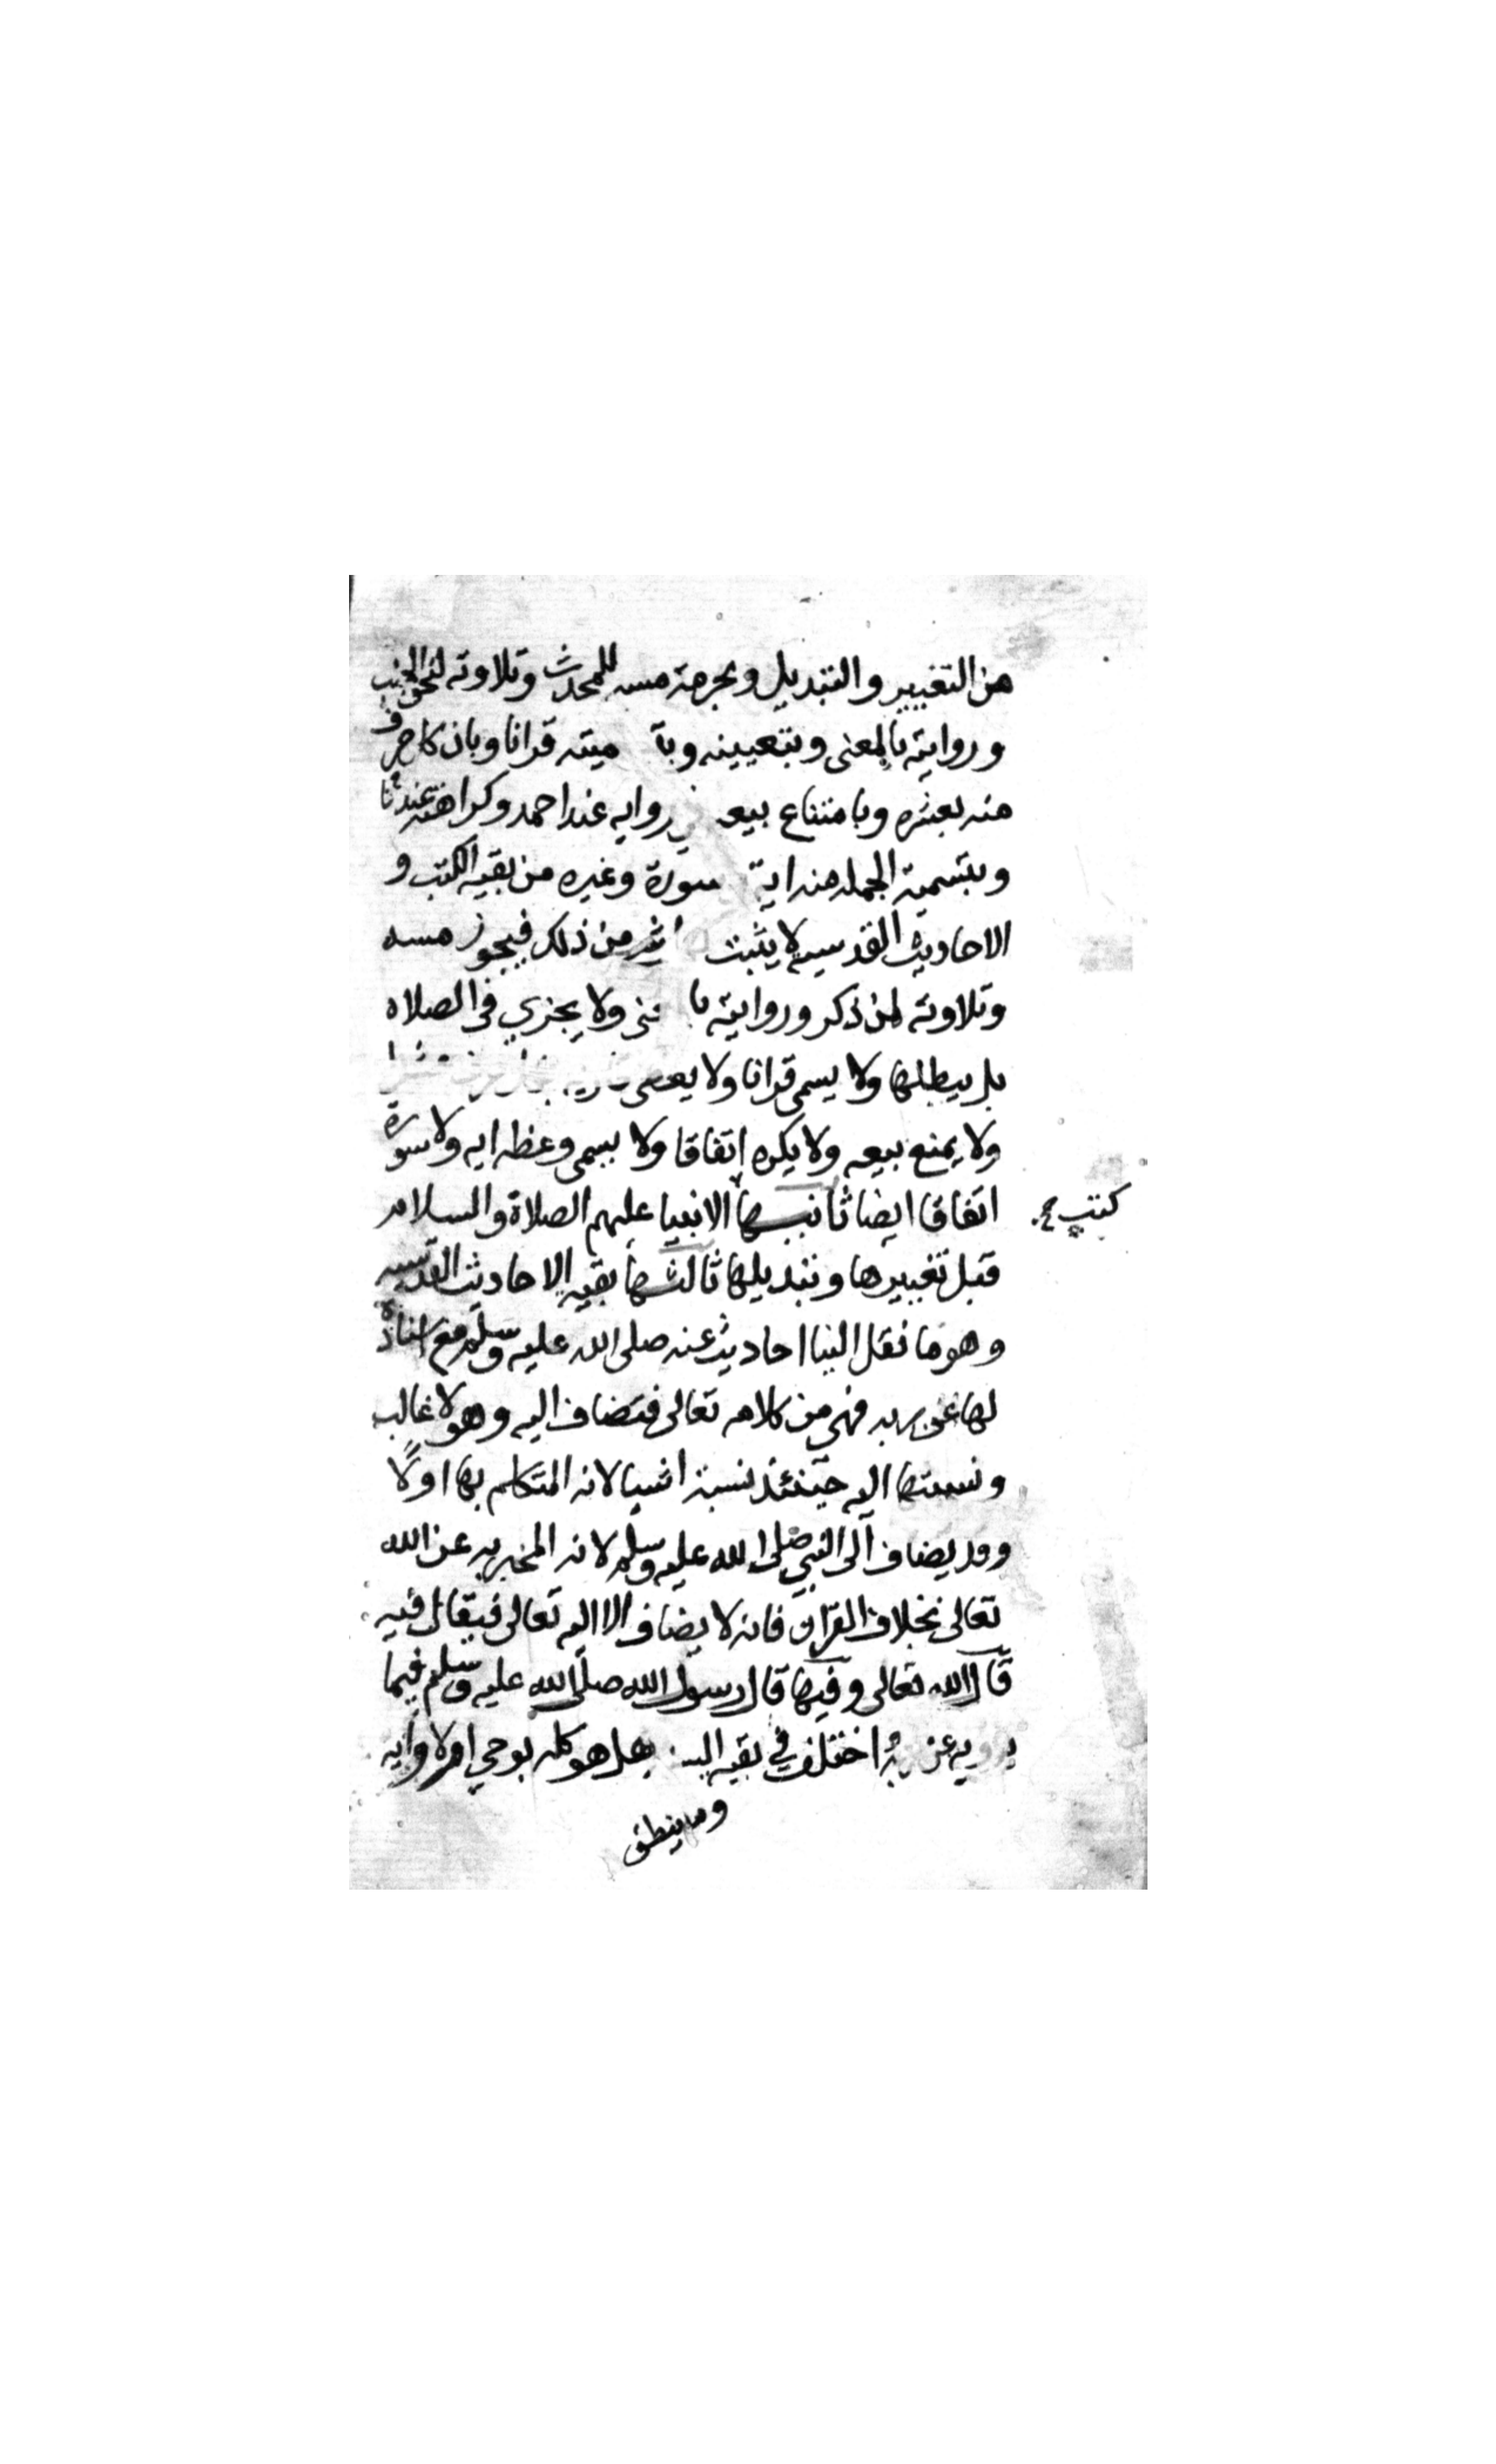 من التغيير والتبديل وبحرمة مسه للمحدث وتلاوته لنحو الجنب
وروايته بالمعنى وبتعيينه وبت ميته قرانا وبان كل حرف
منه بعشره وبامتناع بيعه في روايه عند احمد وكراهته عندنا
وبتسمية الجمله منه اية سورة وغيره من بقيه الكتب و
الاحاديث القدسيه لا يثبت من ذلك فيجوز مسه
وتلاوته لمن ذكر وروايته با نى ولا يجزي في الصلاه
بل يبطلها ولا يسمى قرانا ولا يعطى
ولا يمنع بيعه ولا يكره اتفاقا ولا يسمى ايه ولا سورة
اتفاقا ايضا ثانيها الانبيا عليهم الصلاة والسلام
كتب
قبل تغييرها وتبديلها ثالثها بقيه الاحاديث القدسيه
وهو ما نقل الينا احاديث عنه صلى الله عليه وسلم مع اسناده
لها عن ربه فهي من كلامه تعالى فتضاف اليه وهو لا غالب
ونسبتها اليه حينئذ نسبة انشا لانه المتكلم بها اولا
وقد يضاف الى النبي صلى الله عليه وسلم لانه المخبر به عن الله
تعالى بخلاف القرآن فانه لا يضاف الا اليه تعالى فيقال فيه
قال الله تعالى وفيها قال رسول الله صلى الله عليه وسلم فيما
يرويه عن ربه اختلف في بقيه هل هو كله بوحي اولا وايه
وما ينطق